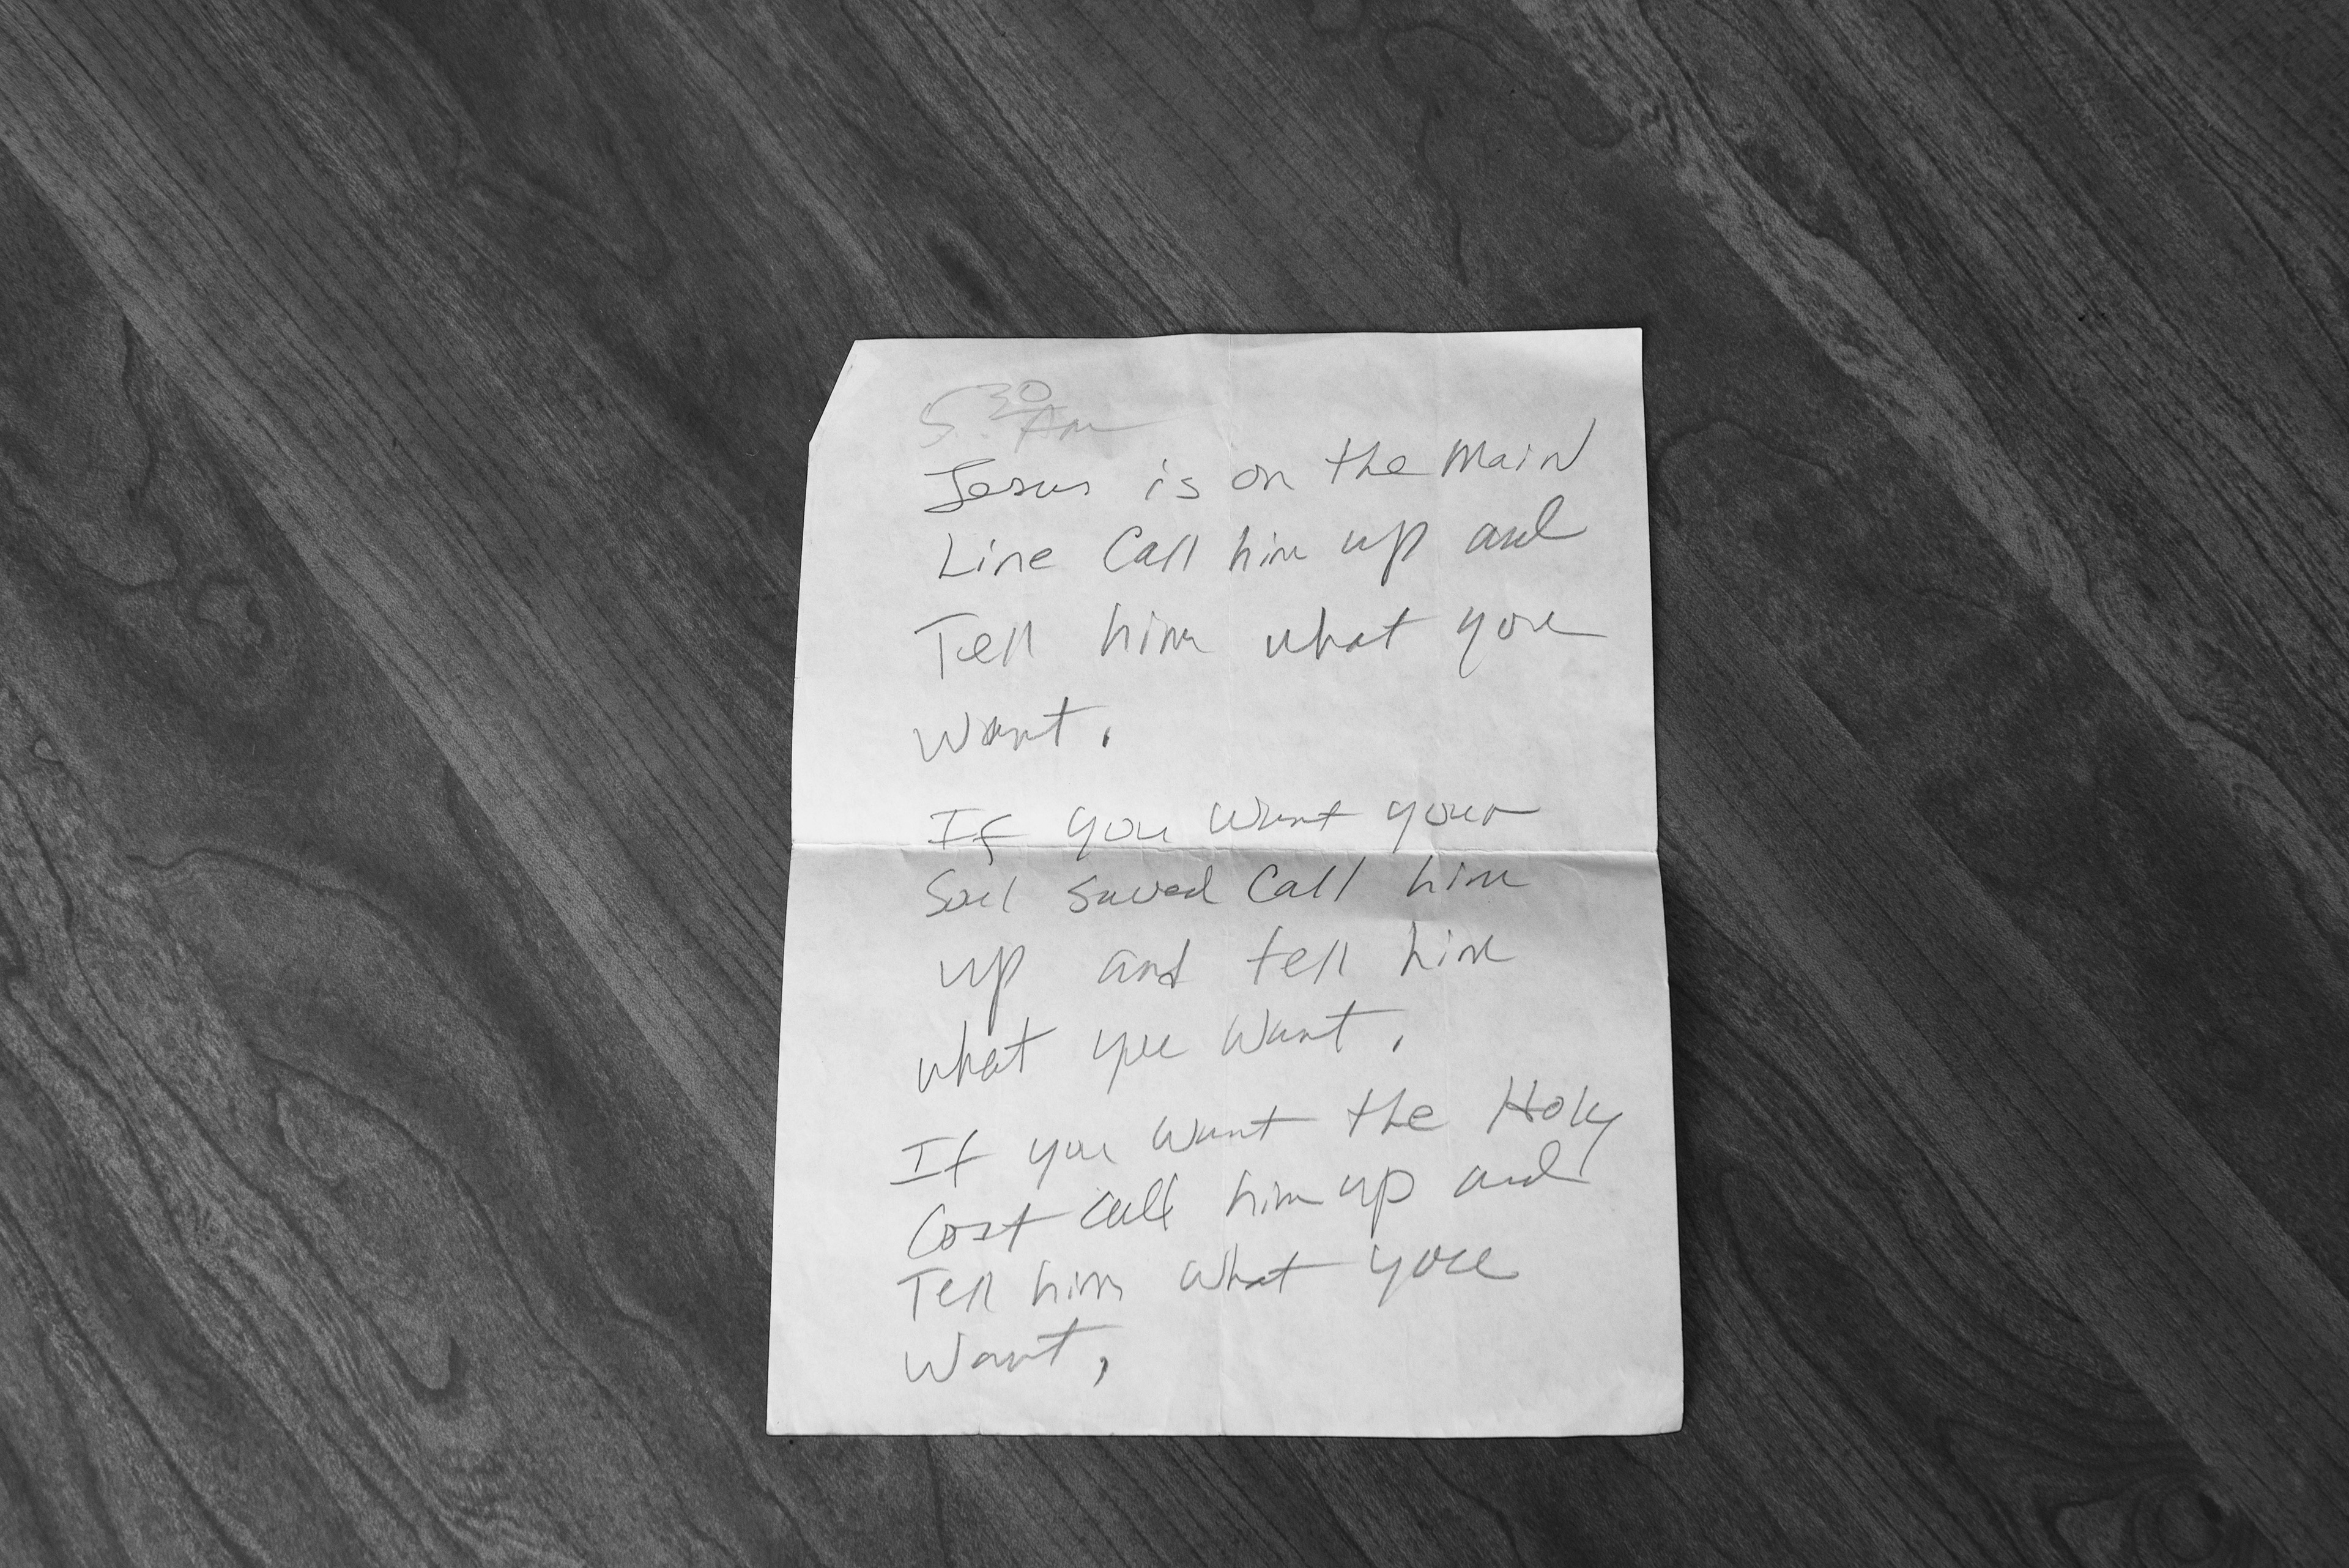 5:30 Am
Jesus is on the Main
Line Call him up and
Tell him what you
Want.
If you want your
Soul saved Call him
up and tell him
what you Want.
If you want the Holy
Cost call him up and
Tell him what you
Want,